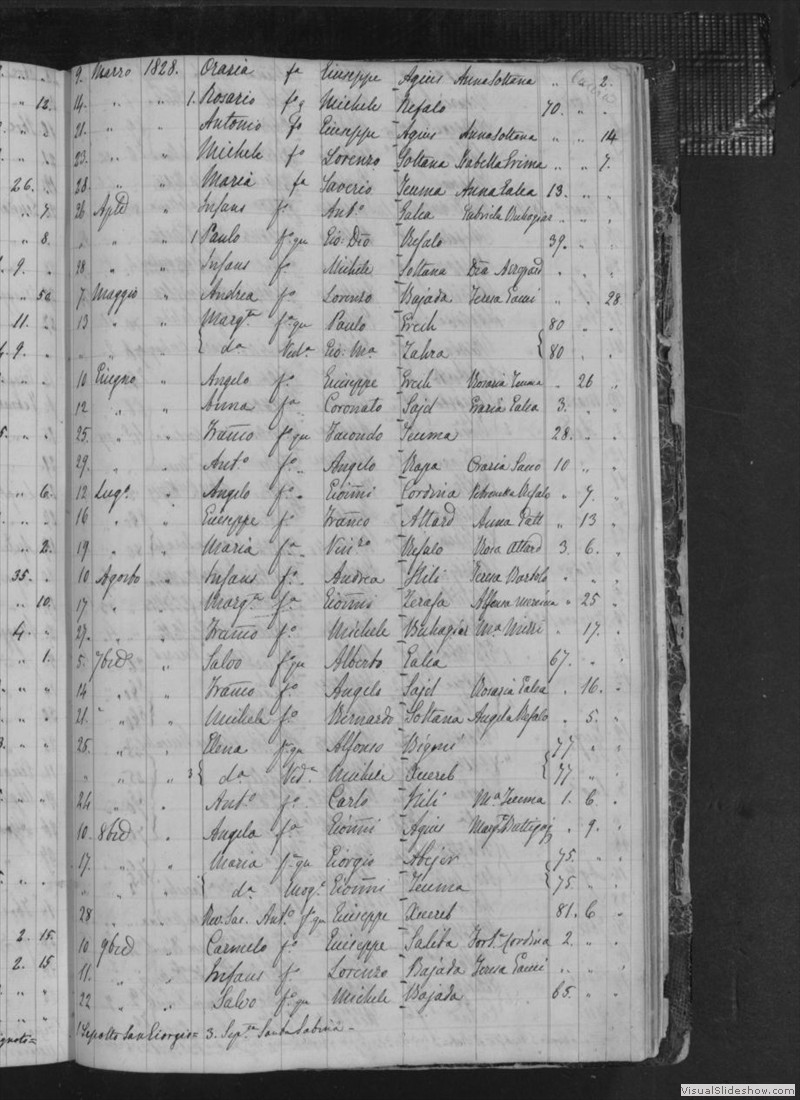 9. Marzo 1828. Orasia fa Giuseppe Agius Anna Soltana " " 2.
14. " " 1. Rosario fo q Michele Refalo 70. " "
21. " " Antonio fo Giuseppe Agius Anna Soltana " " 14
23. " " Michele fo Lorenzo Soltana Isabella Grima " " 7.
28. " " Maria fa Saverio Teuma Anna Galea 13. " "
26 " Infans fo Anto Galea Gabriela Buhagiar " " "
" " 1 Paulo fo qu Gio: Dio Refalo 39. " "
28 " " Infans fo Michele Soltana " " "
7. Maggio " Andrea fo Lorenzo Bajada Teresa " " 28.
13 " " Margta fa qu Paulo 80 " "
" " { da Veda Gio. Ma Zahra { 80 " "
10 Giugno " Angelo fo Giuseppe Rosaria Teuma " 26 "
12 " " Anna fa Coronato Said Grazia Galea 3. " "
25. " " Franco fo qu Facondo Teuma 28. " "
29. " " Anto fo Angelo Rapa Orasia 10 " "
12 Lugo " Angelo fo Gioanni Cordina Refalo " 7. "
16 " " Giuseppe fo Franco Attard Anna Gatt " 13 "
19 " " Maria fa Refalo Rosa Attard 3. 6. "
10 Agosto " Infans fo Andrea Hili Teresa Bartolo " " "
17 " " Margta fa Gioanni Zerafa Alfonsa " 25 "
27. " " Franco fo Michele Buhagiar Ma " 17. "
5. 7bre " Salvo fo qu Alberto Galea 67. " "
14 " " Franco fo Angelo Said Rosaria Galea " 16. "
21. " " Michele fo Bernardo Soltana Angela Refalo " 5. "
25. " " Elena fa qu Alfonso 77 " "
" " " 3 { da Veda Michele Xuereb { 77 " "
26 " " Anto fo Carlo Hili Ma Teuma 1. 6 "
10. 8bre " Angela fa Gioanni Agius Margta Buttigieg " 9. "
17. " " Maria fa qu Giorgio 75. " "
" " " { da Mog. Gioanni Teuma { 75 " "
28 " " Rev. Sac. Anto fo qu Giuseppe Xuereb 81. 6 "
10 9bre " Carmelo fo Giuseppe Saliba Cordina 2. " "
11. " " Infans fo Lorenzo Bajada Teresa " " "
22 " " Salvo fo qu Michele Bajada 65. " "
1 Sepolto San Giorgio = 3. Septa Santa Sabina -
VisualSlideshow.com